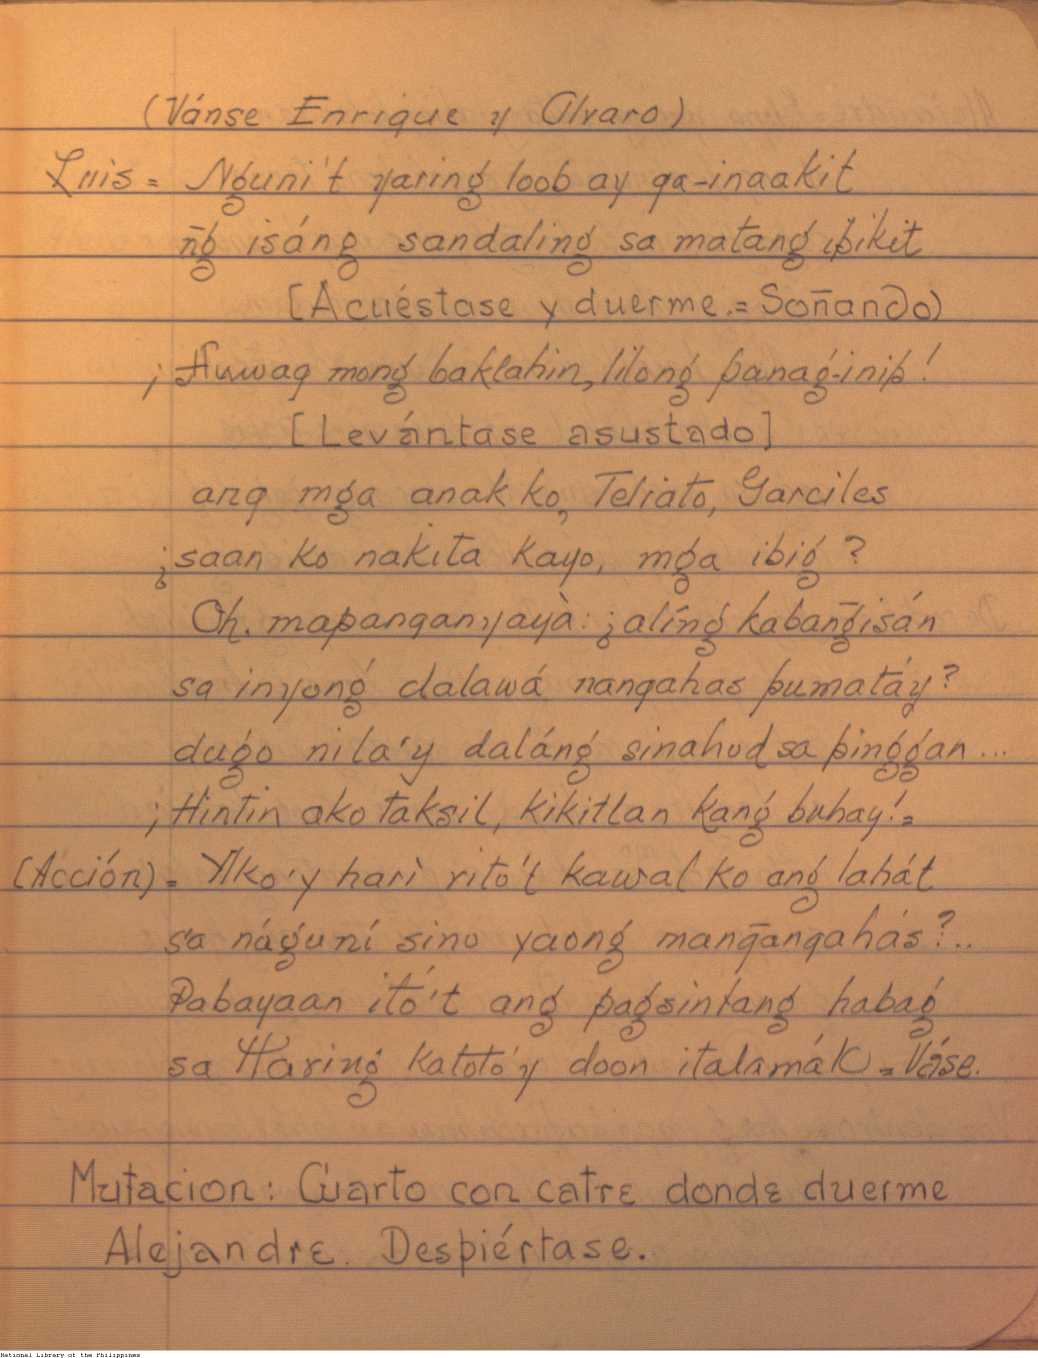 (Vánse Enrique y Alvaro)
Luis = Nguni't yaring loob ay ga-inaakit
n̄g isáng sandaling sa matang ipikit
[Acuéstase y duerme.= Soñando)
¡Huwag mong baklahin, lilong panag-inip!
[Levántase asustado]
ang mga anak ko, Teliato, Garciles
¿saan ko nakita kayo, mga ibig?
Oh. mapanganyayà: ¿alíng kaban̄gisán
sa inyong dalawá nangahas pumatáy?
dugo nila'y daláng sinahod sa pinggan...
¡Hintin ako taksil, kikitlan kang buhay!=
(Acción)= Ako'y harì rito't kawal ko ang lahát
sa náguní sino yaong man̄gangahás?..
Pabayaan itó't ang pagsintang habag
sa Haring katoto'y doon italamák = Váse.
Mutacion: Cuarto con catre donde duerme
Alejandre. Despiértase.
National Library of the Philippines